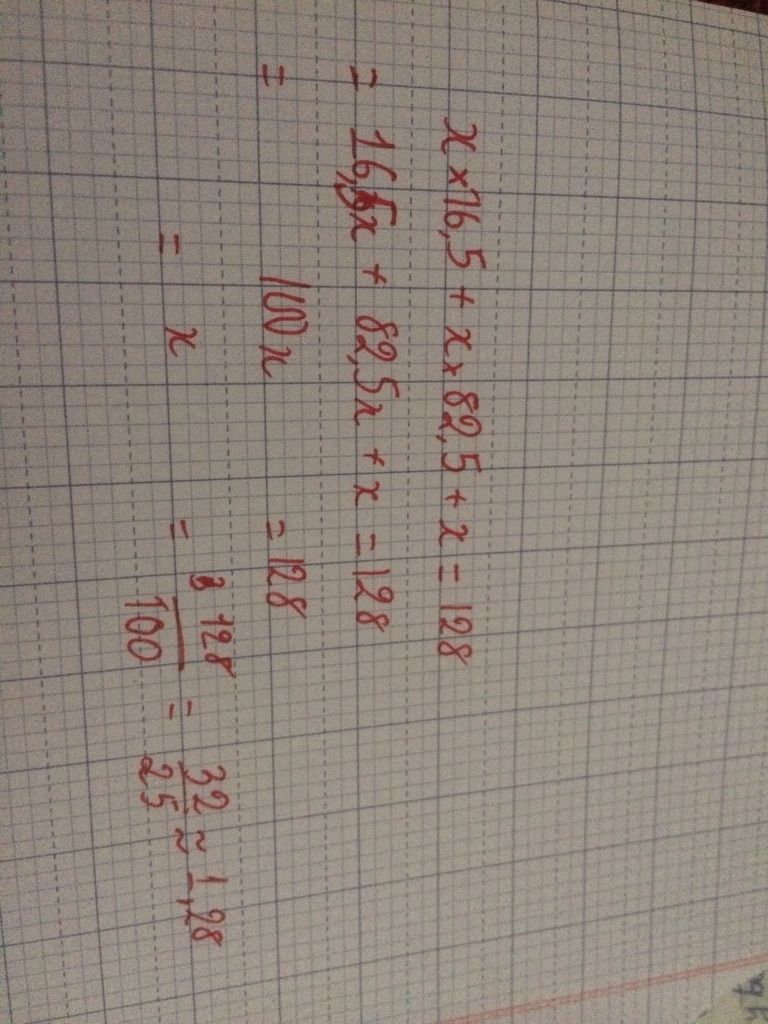 x × 16,5 + x × 82,5 + x = 128
= 16,5x + 82,5x + x = 128
= 100x = 128
= x = 128/100 = 32/25 ≈ 1,28